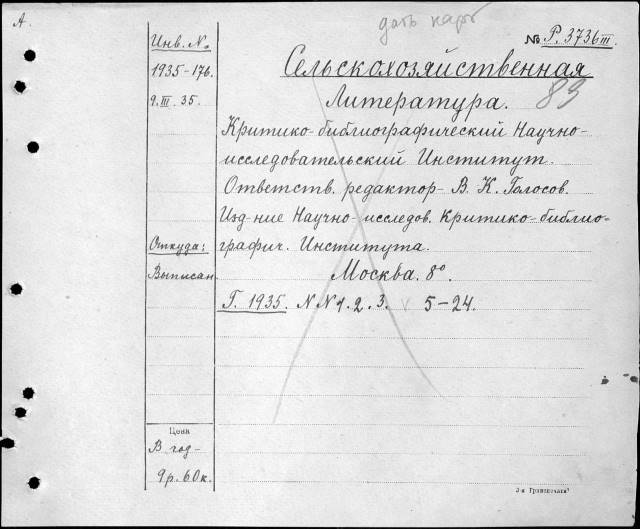 А.
дать карт
Инв. №
1935-176.
9.III.35.
№ Р. 3736 III.
Сельскохозяйственная
Литература.
89
Критико-библиографический Научно-
исследовательский Институт.
Ответств. редактор В. К. Голосов.
Изд-ние Научно-исследов. критико-библио-
графич. Института.
Откуда:
Выписан.
Москва. 8°.
Г. 1935. N N 1. 2. 3. 5-24.
Цена
В год-
9 р. 60 к.